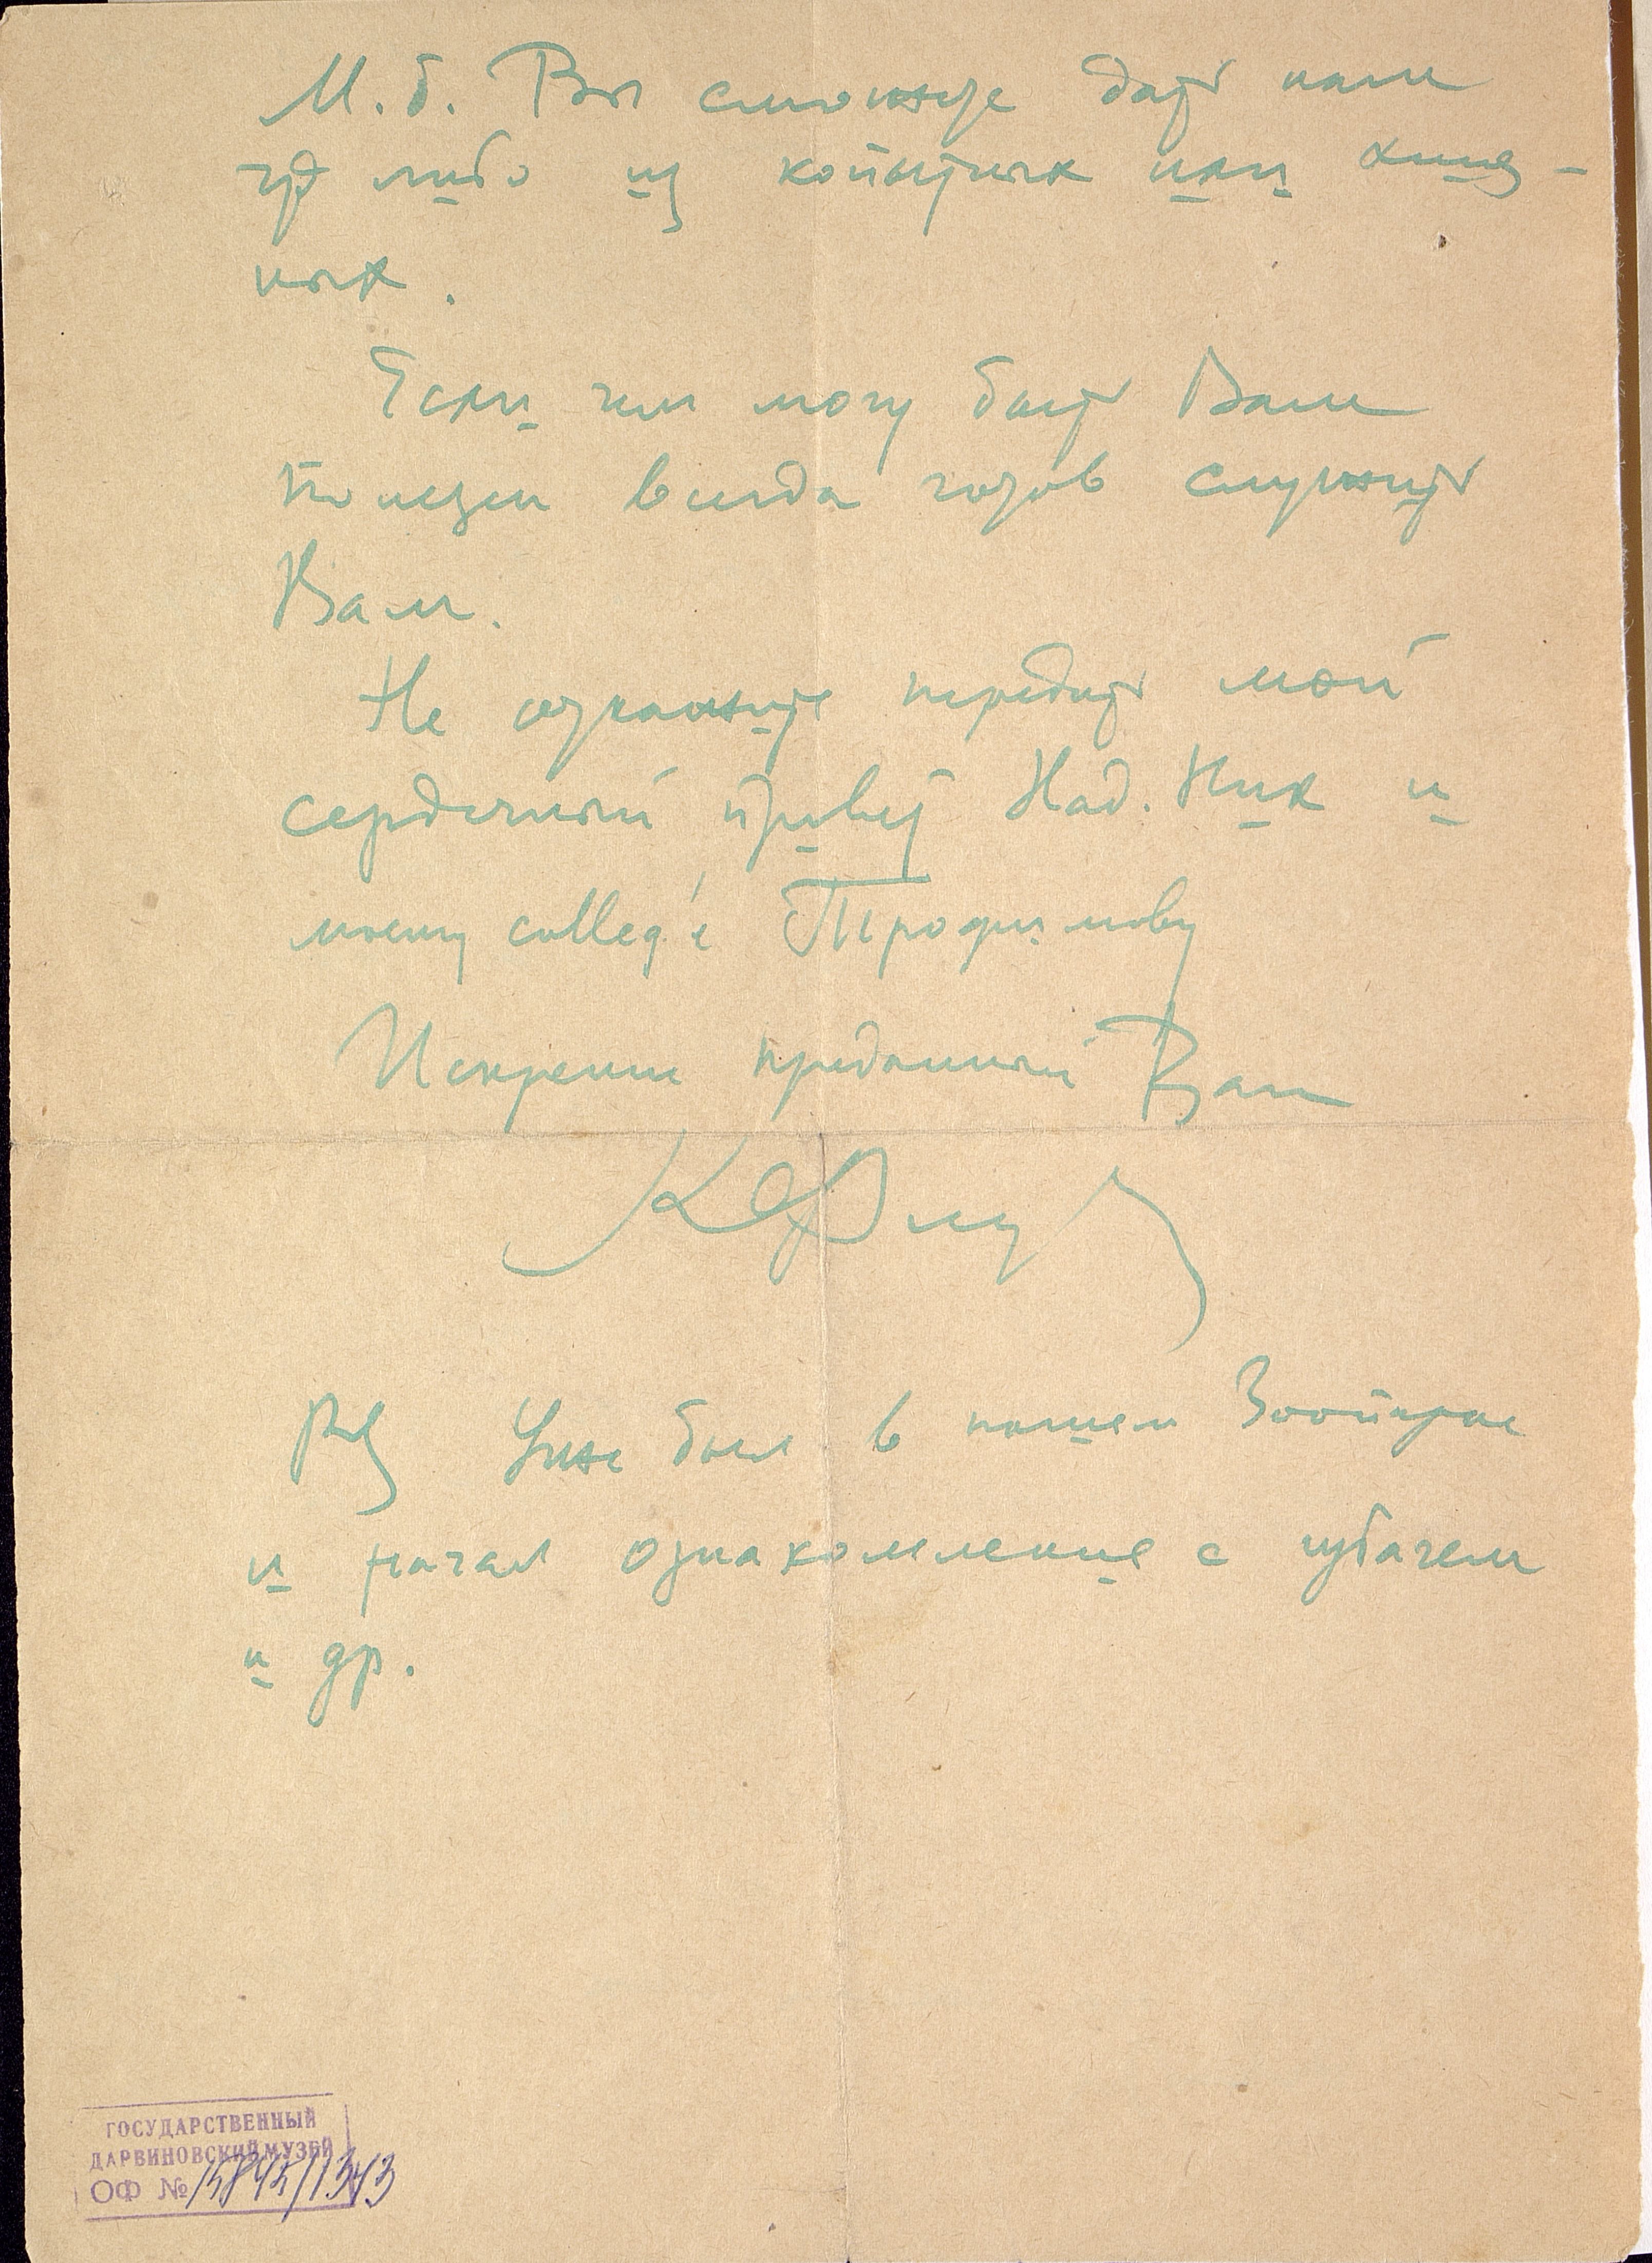 М. б. Вы сможете дать нам
что либо из копытных или хищ-
ных.
Если чем могу быть Вам
полезен всегда готов служить
Вам.
Не откажите передать мой
сердечный привет Над. Ник и
моему colleg'е Трофимову
Искренне преданный Вам
PS Уже был в нашем Зоопарке
и начал ознакомление с
и др.
ГОСУДАРСТВЕННЫЙ
ДАРВИНОВСКИЙ МУЗЕЙ
ОФ № 15845/1343